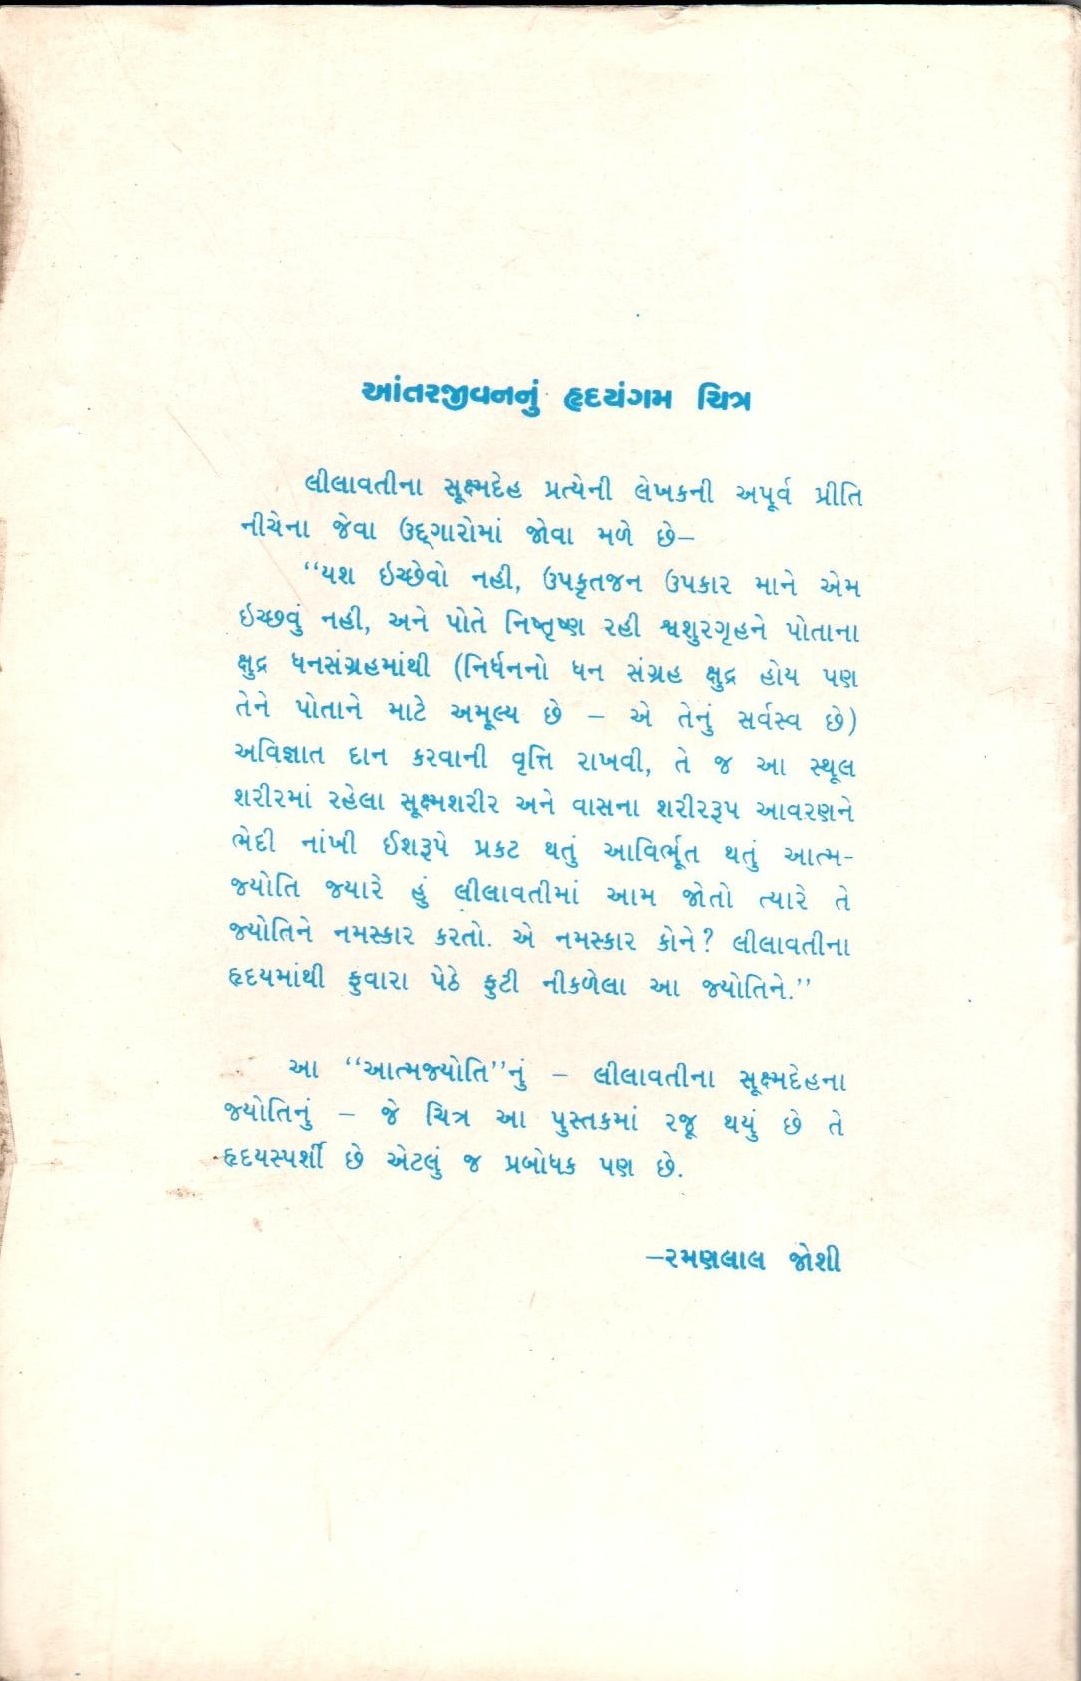 આંતરજીવનનું હૃદયંગમ ચિત્ર
લીલાવતીના સૂક્ષ્મદેહ પ્રત્યેની લેખકની અપૂર્વ પ્રીતિ
નીચેના જેવા ઉદ્‌ગારોમાં જોવા મળે છે–
“યશ ઇચ્છેવો નહી, ઉપકૃતજન ઉપકાર માને એમ
ઇચ્છવું નહી, અને પોતે નિષ્તૃષ્ણ રહી શ્વશુરગૃહને પોતાના
ક્ષુદ્ર ધનસંગ્રહમાંથી (નિર્ધનનો ધન સંગ્રહ ક્ષુદ્ર હોય પણ
તેને પોતાને માટે અમૂલ્ય છે – એ તેનું સર્વસ્વ છે)
અવિજ્ઞાત દાન કરવાની વૃત્તિ રાખવી, તે જ આ સ્થૂલ
શરીરમાં રહેલા સૂક્ષ્મશરીર અને વાસના શરીરરૂપ આવરણને
ભેદી નાંખી ઈશરૂપે પ્રકટ થતું આવિર્ભૂત થતું આત્મ-
જ્યોતિ જ્યારે હું લીલાવતીમાં આમ જોતો ત્યારે તે
જ્યોતિને નમસ્કાર કરતો. એ નમસ્કાર કોને? લીલાવતીના
હૃદયમાંથી ફુવારા પેઠે ફુટી નીકળેલા આ જ્યોતિને.”
આ “આત્મજ્યોતિ”નું – લીલાવતીના સૂક્ષ્મદેહના
જ્યોતિનું – જે ચિત્ર આ પુસ્તકમાં રજૂ થયું છે તે
હૃદયસ્પર્શી છે એટલું જ પ્રબોધક પણ છે.
–રમણલાલ જોશી